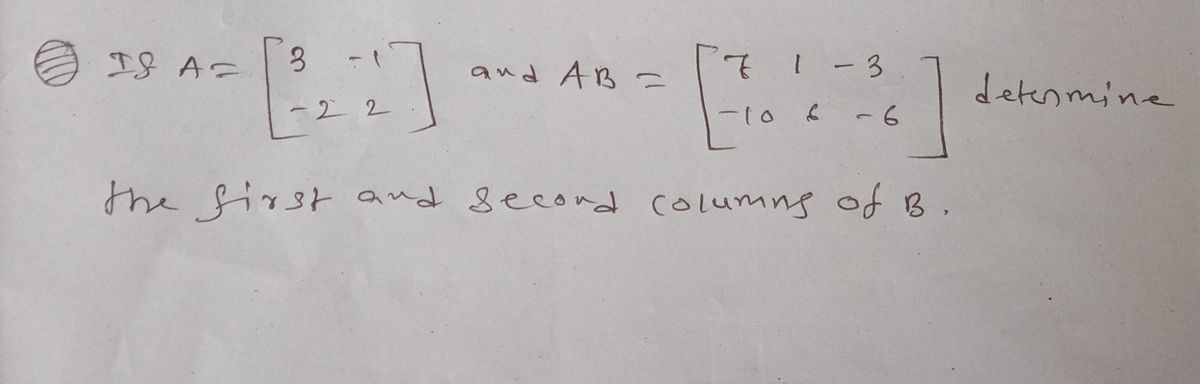 If A = [3 -1 -2 2] and AB = [7 1 -3 -10 6 -6] determine
the first and second columns of B.